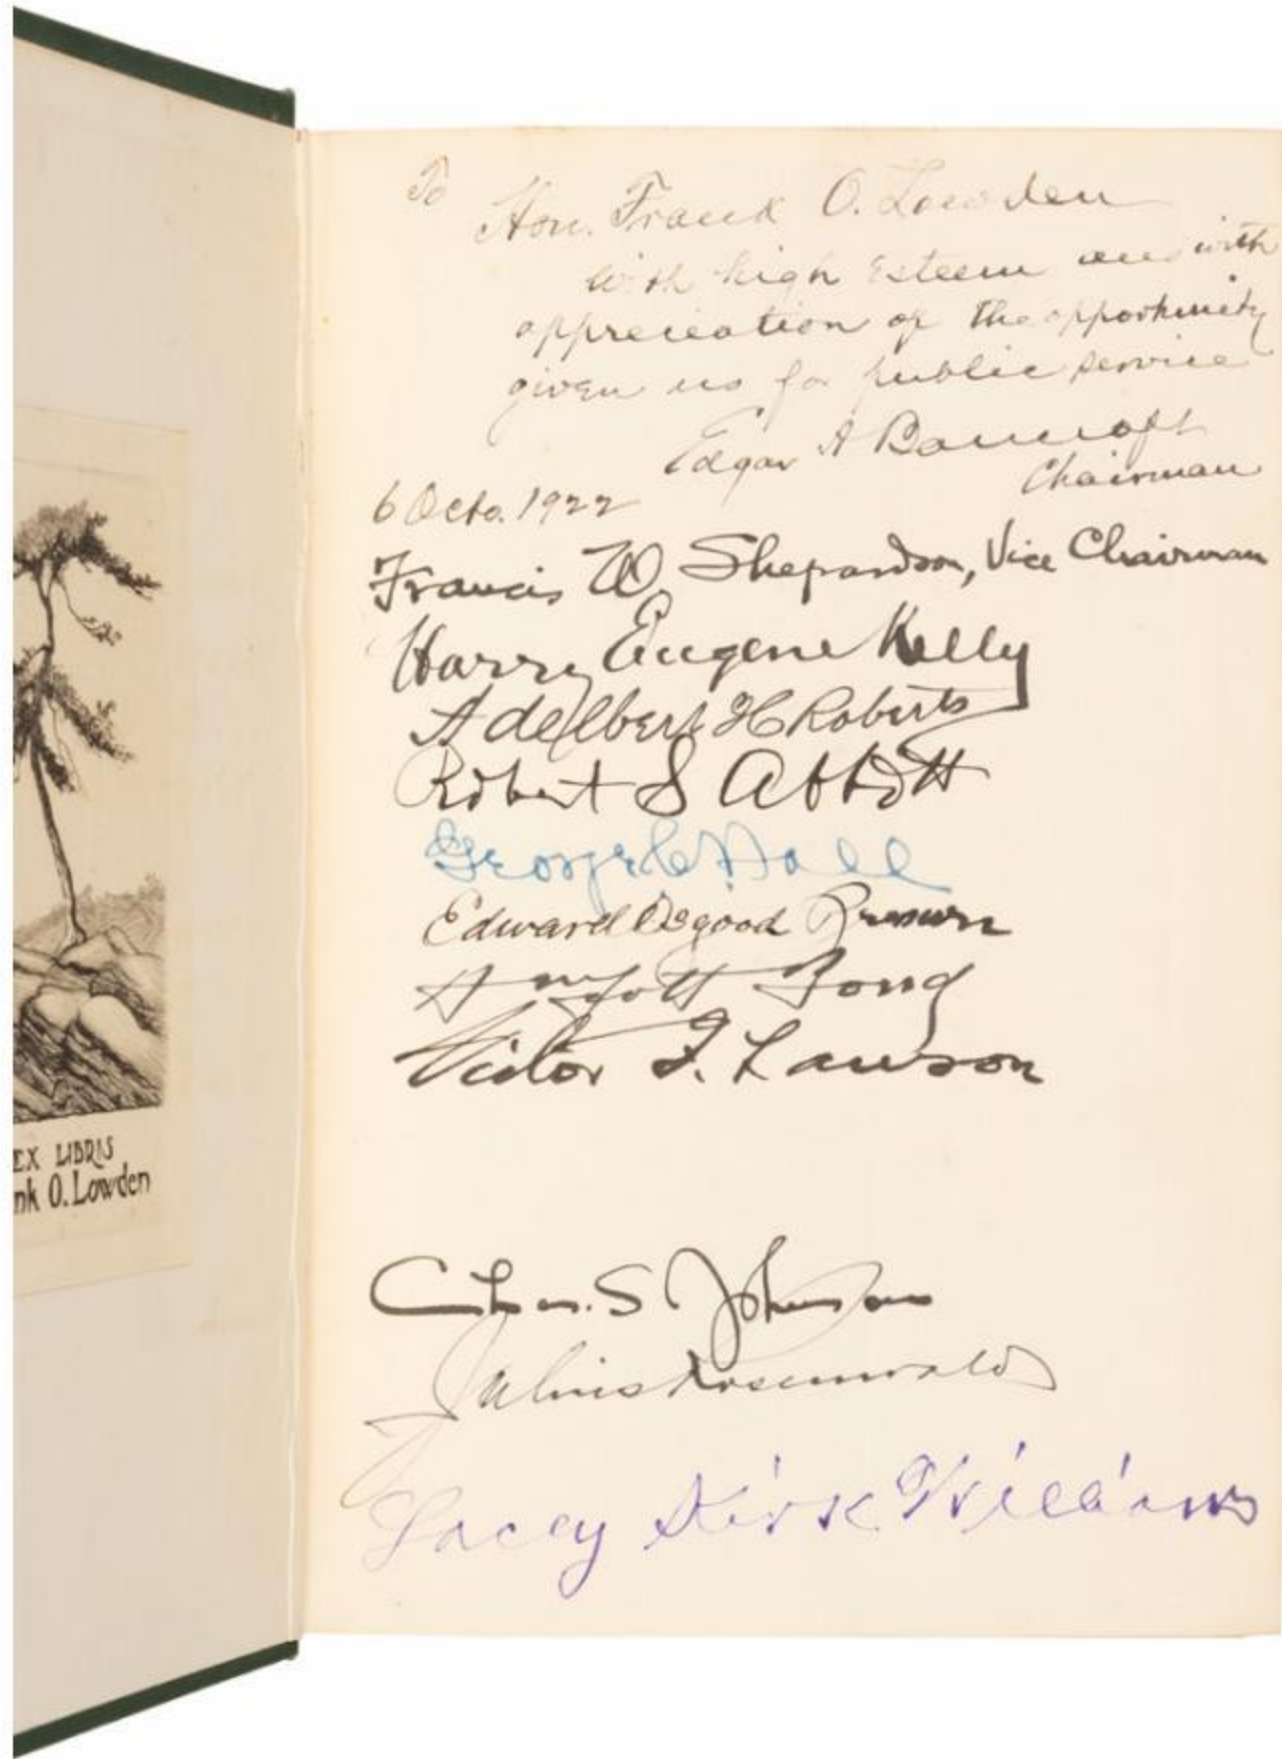 EX LIBRIS
nk O. Lowden
To
Hon. Frank O. Lowden
with high esteem and with
appreciation of the opportunity
given us for public service
Edgar A Bancroft
Chairman
6 Octo. 1922
Francis W Shepardson, Vice Chairman
Harry Eugene Kelly
Adelbert H Roberts
Robert S Abbott
George C Hall
Edward Osgood Brown
Victor F. Lawson
Chas. S Johnson
Julius Rosenwald
Lacey Kirk Williams